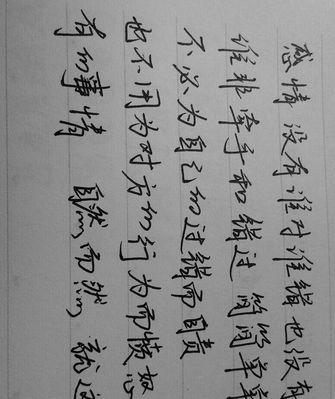 感情 没有谁对谁错 也没有
谁非牵手和错过 简简单单
不必为自己的过错而自责
也不用为对方的行为而愤怒
有的事情 自然而然 就这